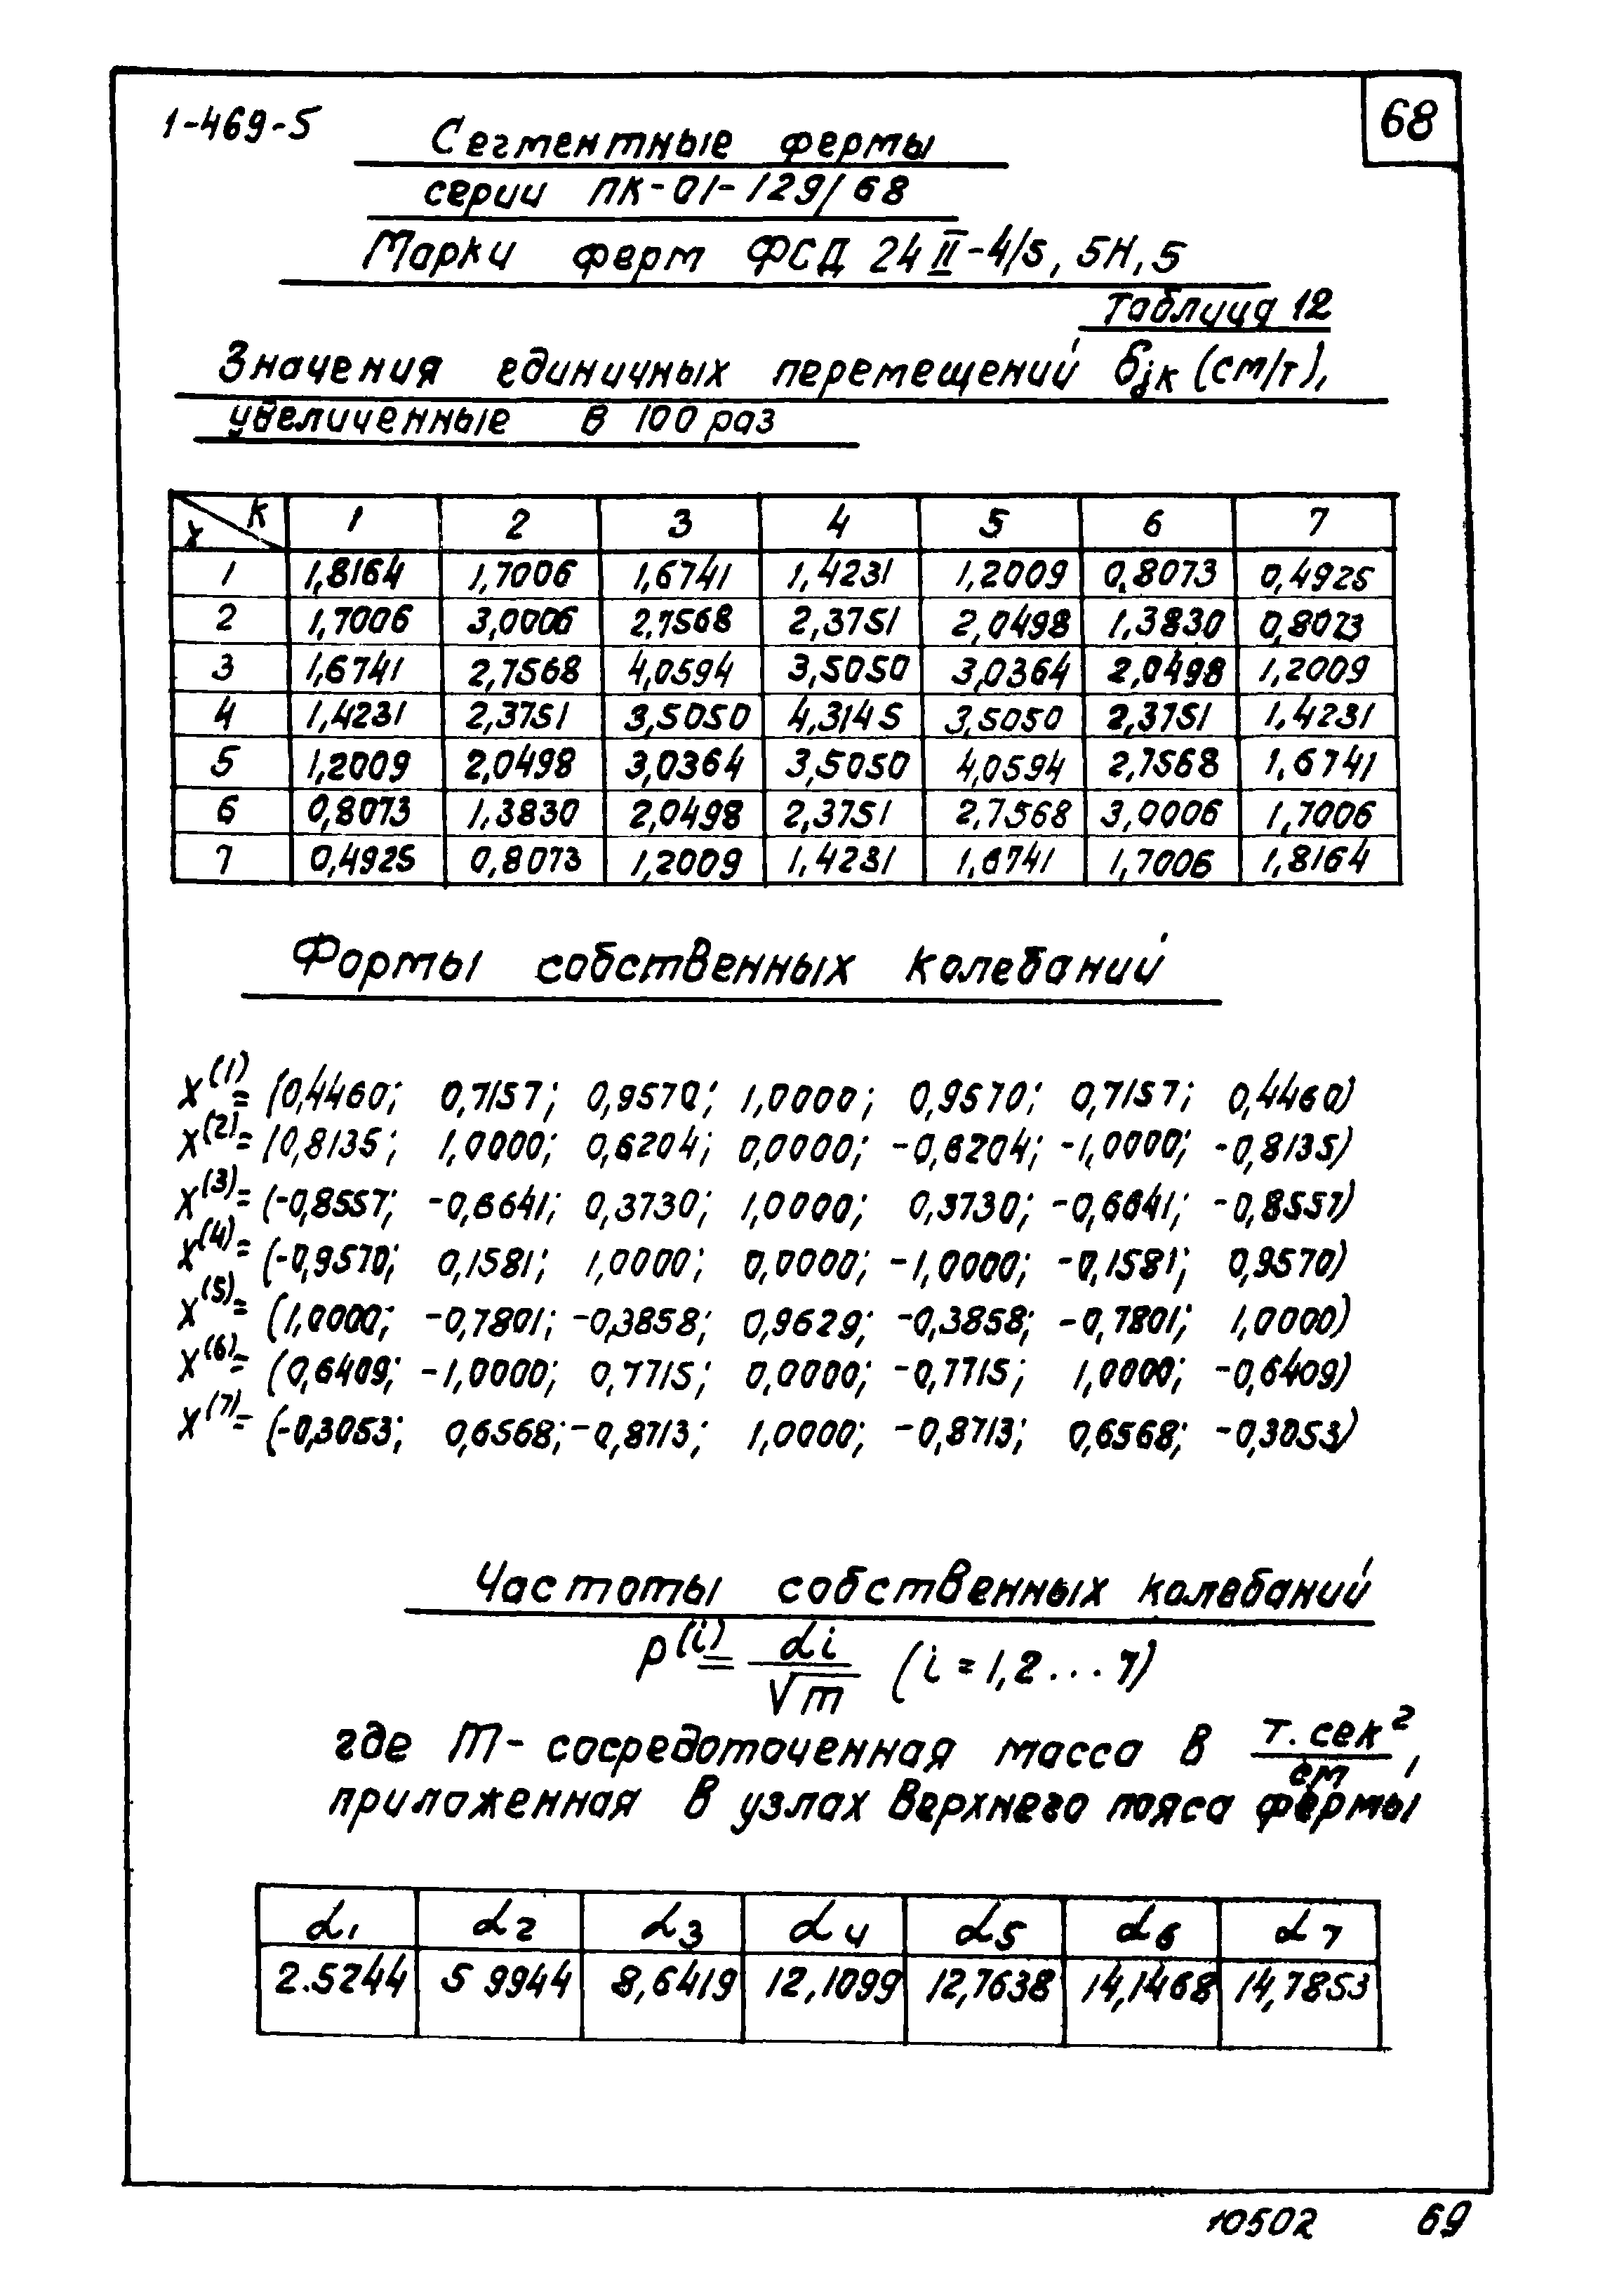 1-469-5
68
Сегментные фермы
серии ПК-01-129/68
Марки ферм ФСД 24 II-4/5, 5Н, 5
Таблица 12
Значения единичных перемещений δjк (см/т),
увеличенные в 100 раз
χ К 1 2 3 4 5 6 7
1 1,8164 1,7006 1,6741 1,4231 1,2009 0,8073 0,4925
2 1,7006 3,0006 2,7568 2,3751 2,0498 1,3830 0,8073
3 1,6741 2,7568 4,0594 3,5050 3,0364 2,0498 1,2009
4 1,4231 2,3751 3,5050 4,3145 3,5050 2,3751 1,4231
5 1,2009 2,0498 3,0364 3,5050 4,0594 2,7568 1,6741
6 0,8073 1,3830 2,0498 2,3751 2,7568 3,0006 1,7006
7 0,4925 0,8073 1,2009 1,4231 1,6741 1,7006 1,8164
Формы собственных колебаний
X(1)= (0,4460; 0,7157; 0,9570; 1,0000; 0,9570; 0,7157; 0,4460)
X(2)= (0,8135; 1,0000; 0,6204; 0,0000; -0,6204; -1,0000; -0,8135)
X(3)= (-0,8557; -0,6641; 0,3730; 1,0000; 0,3730; -0,6641; -0,8557)
X(4)= (-0,9570; 0,1581; 1,0000; 0,0000; -1,0000; -0,1581; 0,9570)
X(5)= (1,0000; -0,7801; -0,3858; 0,9629; -0,3858; -0,7801; 1,0000)
X(6)= (0,6409; -1,0000; 0,7715; 0,0000; -0,7715; 1,0000; -0,6409)
X(7)= (-0,3053; 0,6568; -0,8713; 1,0000; -0,8713; 0,6568; -0,3053)
Частоты собственных колебаний
P(i)= αi/√m (i = 1,2...7)
где m- сосредоточенная масса в т.сек²/см,
приложенная в узлах верхнего пояса фермы
α1 α2 α3 α4 α5 α6 α7
2.5244 5 9944 8,6419 12,1099 12,7638 14,1468 14,7853
10502 69